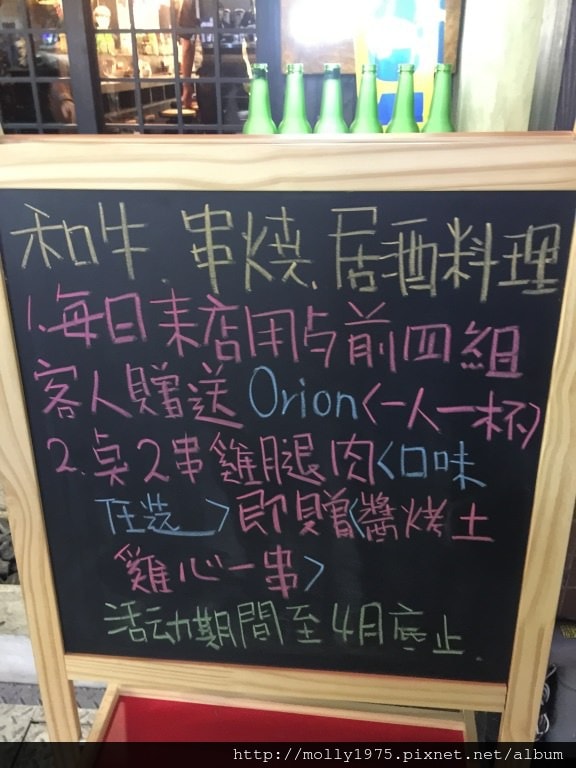 和牛.串燒.居酒料理
1.每日来店用与前四組
客人贈送 Orion<一人一杯>
2.点2串雞腿肉<口味
任选>即贈<醬烤土
雞心一串>
活动期間至4月底止.
http://molly1975.pixnet.net/album